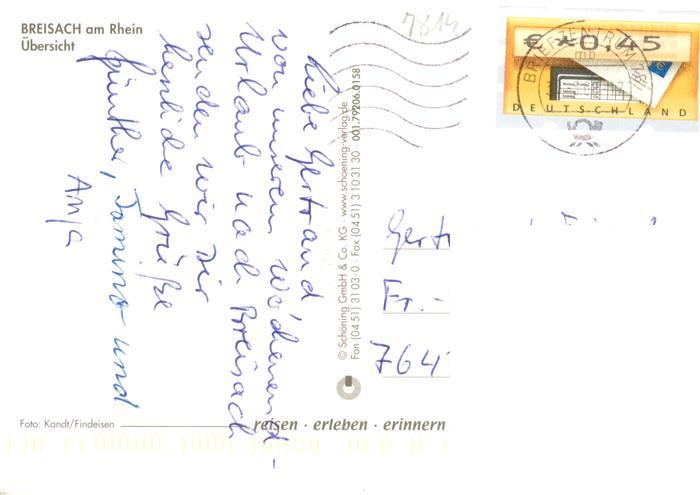 BREISACH am Rhein
Übersicht
7814
€ *0,45
DEUTSCHLAND
BRIEFZENTRUM
Liebe Gertraud
von unserem Wochenend-
Urlaub nach Breisach
senden wir Dir
herzliche Grüße
Günther, Tamino und
Anja
© Schöning GmbH & Co. KG · www.schoening-verlag.de
Fon (04 51) 31 03-0 · Fax (04 51) 3 10 31 30 · 001.79206.0158
Gert
Fr.-
764
Foto: Kandt/Findeisen
reisen · erleben · erinnern